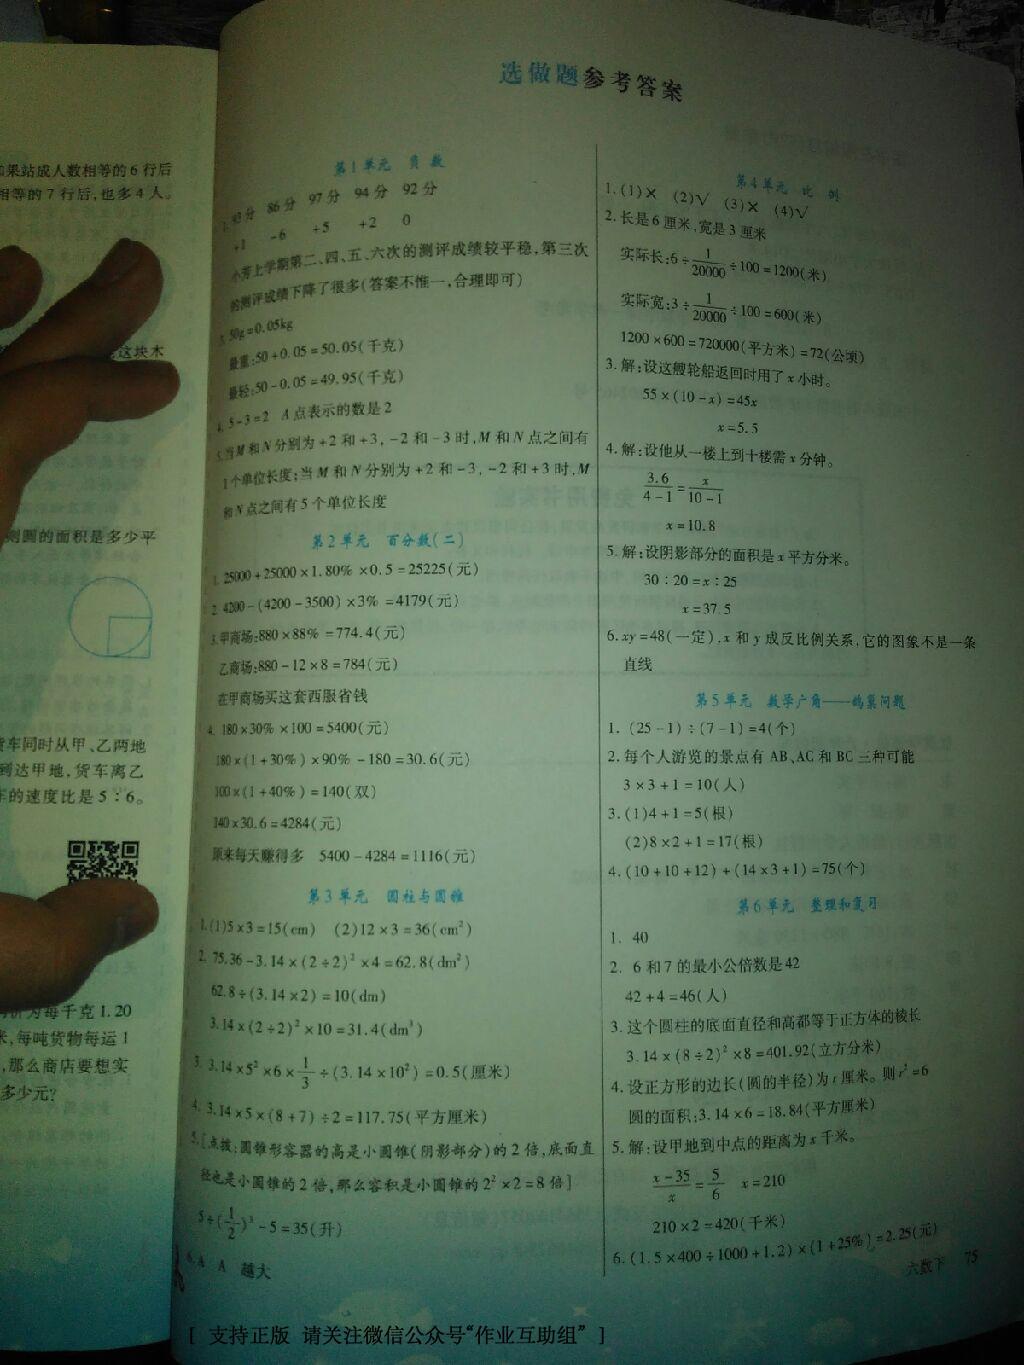 如果站成人数相等的6行后
相等的7行后,也多4人。
这块木
则圆的面积是多少平
货车同时从甲、乙两地
到达甲地,货车离乙
车的速度比是5∶6。
价为每千克1.20
米,每吨货物每运1
,那么商店要想实
多少元?
选做题参考答案
第1单元 负数
1. 93分 86分 97分 94分 92分
+1 -6 +5 +2 0
小芳上学期第二、四、五、六次的测评成绩较平稳,第三次
的测评成绩下降了很多(答案不惟一,合理即可)
3. 50g=0.05kg
最重:50+0.05=50.05(千克)
最轻:50-0.05=49.95(千克)
4. 5-3=2 A点表示的数是2
5.当M和N分别为+2和+3,-2和-3时,M和N点之间有
1个单位长度;当M和N分别为+2和-3,-2和+3时,M
和N点之间有5个单位长度
第2单元 百分数(二)
1. 25000+25000×1.80%×0.5=25225(元)
2. 4200-(4200-3500)×3%=4179(元)
3.甲商场:880×88%=774.4(元)
乙商场:880-12×8=784(元)
在甲商场买这套西服省钱
4. 180×30%×100=5400(元)
180×(1+30%)×90%-180=30.6(元)
100×(1+40%)=140(双)
140×30.6=4284(元)
原来每天赚得多 5400-4284=1116(元)
第3单元 圆柱与圆锥
1.(1)5×3=15(cm) (2)12×3=36(cm²)
2. 75.36-3.14×(2÷2)²×4=62.8(dm²)
62.8÷(3.14×2)=10(dm)
3.14×(2÷2)²×10=31.4(dm³)
3. 3.14×5²×6×1/3÷(3.14×10²)=0.5(厘米)
4. 3.14×5×(8+7)÷2=117.75(平方厘米)
5.[点拨:圆锥形容器的高是小圆锥(阴影部分)的2倍,底面直
径也是小圆锥的2倍,那么容积是小圆锥的2²×2=8倍]
5÷(1/2)³-5=35(升)
6. A A 越大
第4单元 比例
1.(1)× (2)√ (3)× (4)√
2.长是6厘米,宽是3厘米
实际长:6÷1/20000÷100=1200(米)
实际宽:3÷1/20000÷100=600(米)
1200×600=720000(平方米)=72(公顷)
3.解:设这艘轮船返回时用了x小时。
55×(10-x)=45x
x=5.5
4.解:设他从一楼上到十楼需x分钟。
3.6/4-1=x/10-1
x=10.8
5.解:设阴影部分的面积是x平方分米。
30∶20=x∶25
x=37.5
6.xy=48(一定),x和y成反比例关系,它的图象不是一条
直线
第5单元 数学广角——鸽巢问题
1. (25-1)÷(7-1)=4(个)
2.每个人游览的景点有AB、AC和BC三种可能
3×3+1=10(人)
3.(1)4+1=5(根)
(2)8×2+1=17(根)
4.(10+10+12)+(14×3+1)=75(个)
第6单元 整理和复习
1. 40
2. 6和7的最小公倍数是42
42+4=46(人)
3.这个圆柱的底面直径和高都等于正方体的棱长
3.14×(8÷2)²×8=401.92(立方分米)
4.设正方形的边长(圆的半径)为r厘米。则r²=6
圆的面积:3.14×6=18.84(平方厘米)
5.解:设甲地到中点的距离为x千米。
x-35/x=5/6 x=210
210×2=420(千米)
6.(1.5×400÷1000+1.2)×(1+25%)=2.25(元)
六数下 75
[ 支持正版 请关注微信公众号“作业互助组” ]